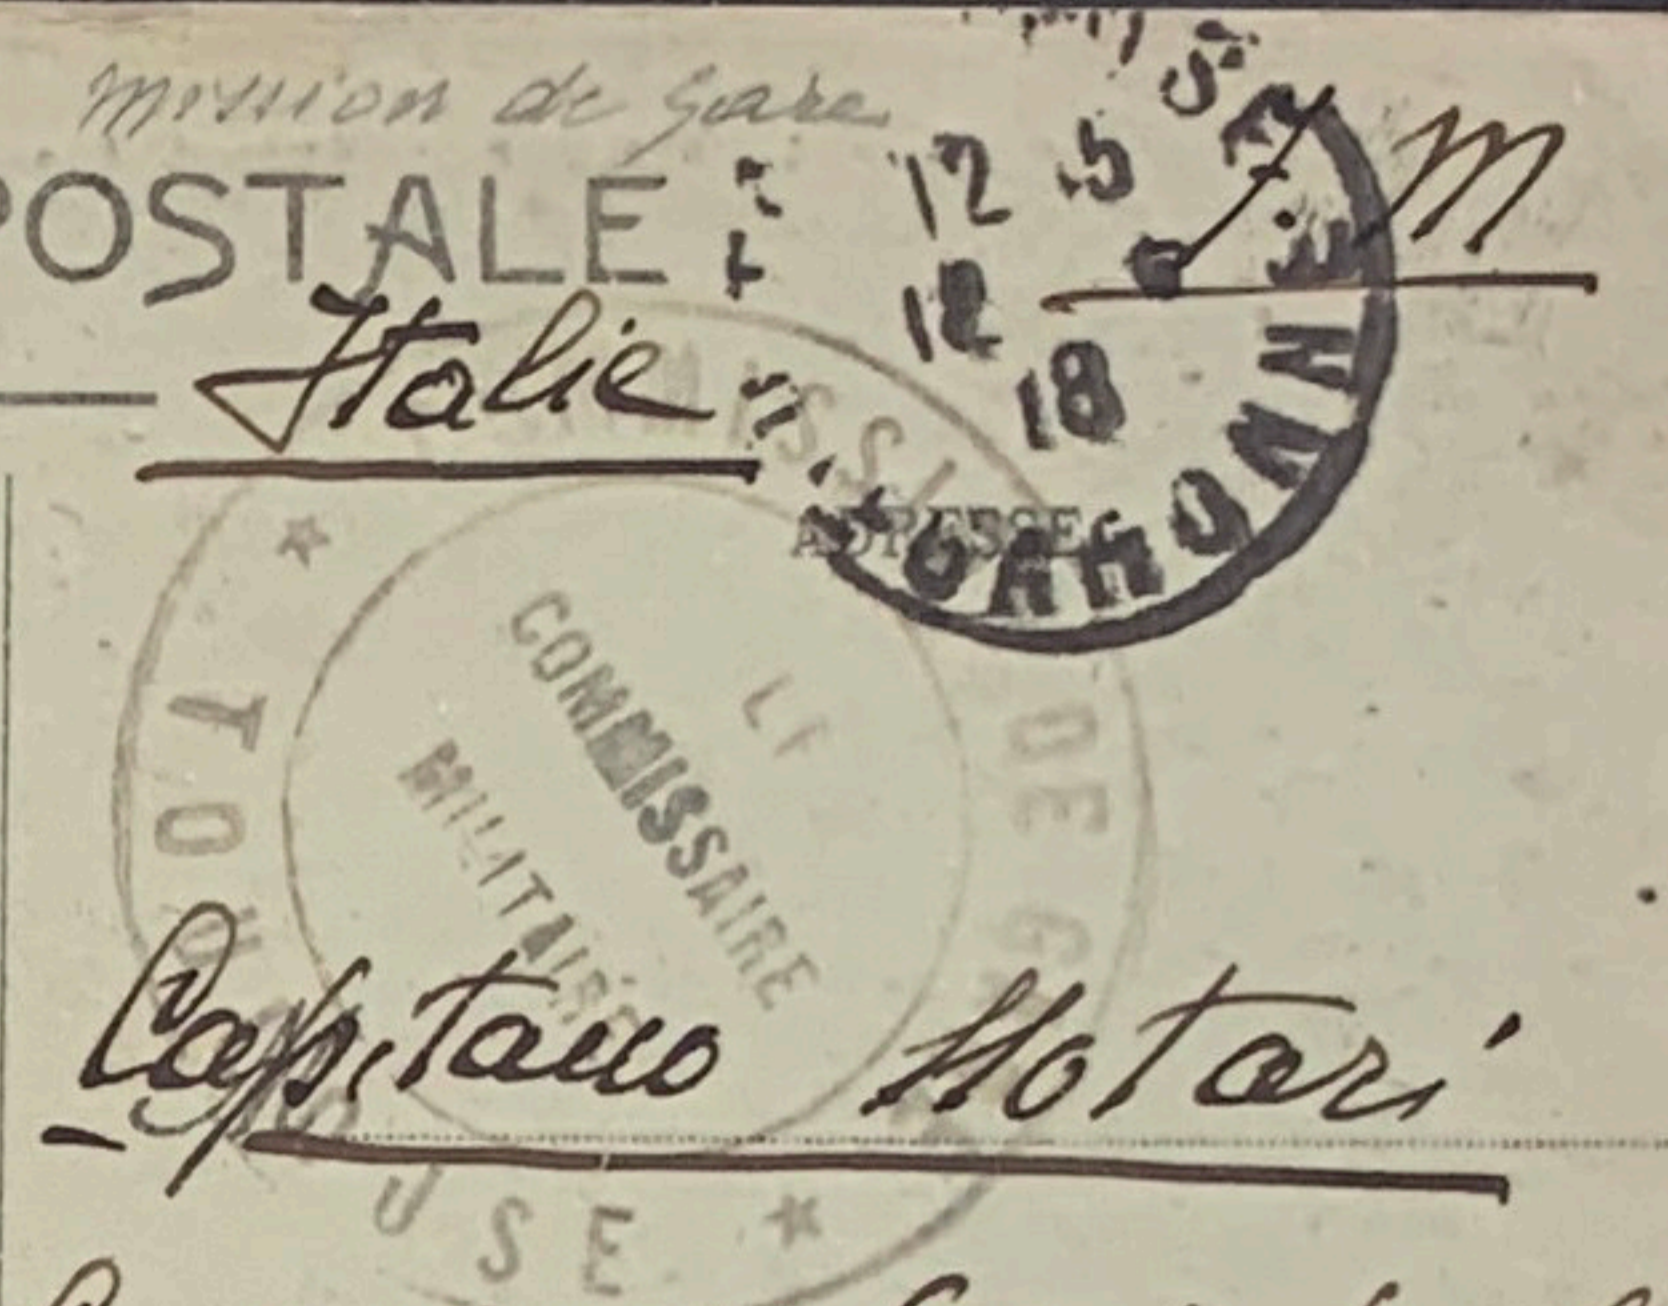 mission de Gare
POSTALE
12 5
12
18
Hte GARONNE
F. M
Italie
ADRESSE
COMMISSI DE G
TOULOUSE
LE
COMMISSAIRE
MILITAIRE
Capitano Notari